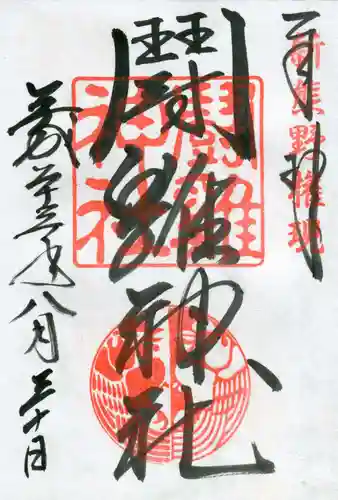 奉拝
新熊野権現
鬪雞神社
鬪雞神社
平成二十三年八月三十日